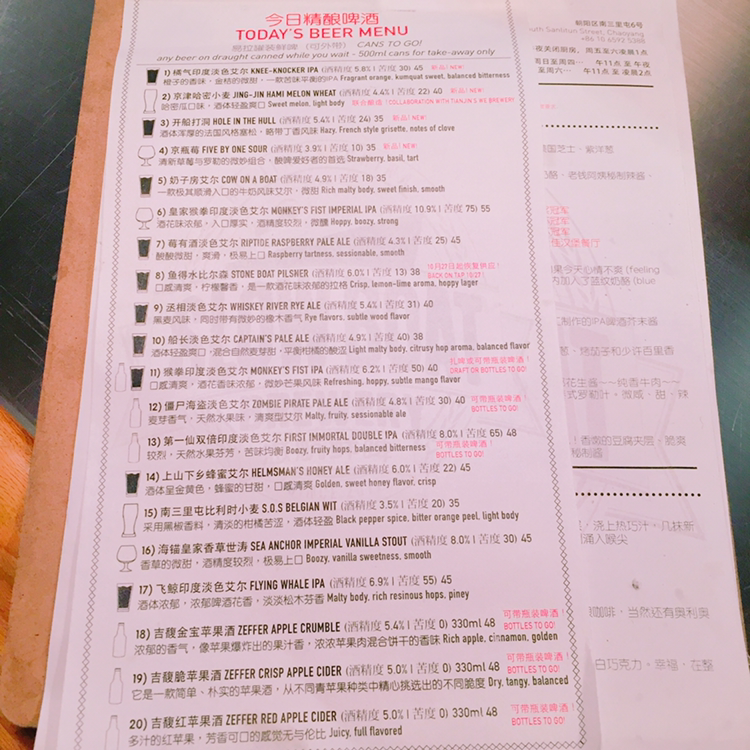 今日精酿啤酒
TODAY'S BEER MENU
易拉罐装鲜啤 (可外带) CANS TO GO!
any beer on draught canned while you wait - 500ml cans for take-away only
1) 橘气印度淡色艾尔 KNEE-KNOCKER IPA (酒精度 5.8% | 苦度 30) 45 新品! NEW!
橙子的香味,金桔的微甜,一款苦味平衡的IPA Fragrant orange, kumquat sweet, balanced bitterness
2) 京津哈密小麦 JING-JIN HAMI MELON WHEAT (酒精度 4.4% | 苦度 22) 40 新品! NEW!
哈密瓜口味,酒体轻盈爽口 Sweet melon, light body 联合酿造! COLLABORATION WITH TIANJIN'S WE BREWERY
3) 开船打洞 HOLE IN THE HULL (酒精度 5.4% | 苦度 24) 35 新品! NEW!
酒体浑厚的法国风格塞松,略带丁香风味 Hazy, French style grisette, notes of clove
4) 京瓶莓 FIVE BY ONE SOUR (酒精度 3.9% | 苦度 10) 35 新品! NEW!
清新草莓与罗勒的微妙组合,酸啤爱好者的首选 Strawberry, basil, tart
5) 奶子房艾尔 COW ON A BOAT (酒精度 4.9% | 苦度 18) 35
一款极其顺滑入口的牛奶风味艾尔,微甜 Rich malty body, sweet finish, smooth
6) 皇家猴拳印度淡色艾尔 MONKEY'S FIST IMPERIAL IPA (酒精度 10.9% | 苦度 75) 55
酒花味浓郁,入口厚实,酒精度较烈,微醺 Hoppy, boozy, strong
7) 莓有酒淡色艾尔 RIPTIDE RASPBERRY PALE ALE (酒精度 4.3% | 苦度 25) 45
酸酸微甜,爽滑,极易上口 Raspberry tartness, sessionable, smooth
8) 鱼得水比尔森 STONE BOAT PILSNER (酒精度 6.0% | 苦度 13) 38 10月27日起恢复供应!
口感清爽,柠檬馨香,是一款酒花味浓郁的拉格 Crisp, lemon-lime aroma, hoppy lager BACK ON TAP (10.27)
9) 丞相淡色艾尔 WHISKEY RIVER RYE ALE (酒精度 5.4% | 苦度 31) 40
黑麦风味,同时带有微妙的橡木香气 Rye flavors, subtle wood flavor
10) 船长淡色艾尔 CAPTAIN'S PALE ALE (酒精度 4.9% | 苦度 40) 38
酒体轻盈爽口,混合自然麦芽甜,平衡柑橘的酸涩 Light malty body, citrusy hop aroma, balanced flavor
11) 猴拳印度淡色艾尔 MONKEY'S FIST IPA (酒精度 6.2% | 苦度 50) 40 扎啤或可带瓶装啤酒!
口感清爽,酒花香味浓郁,微妙芒果风味 Refreshing, hoppy, subtle mango flavor DRAFT OR BOTTLES TO GO!
12) 僵尸海盗淡色艾尔 ZOMBIE PIRATE PALE ALE (酒精度 4.8% | 苦度 30) 40 可带瓶装啤酒!
麦芽香气,天然水果味,清爽型艾尔 Malty, fruity, sessionable ale BOTTLES TO GO!
13) 第一仙双倍印度淡色艾尔 FIRST IMMORTAL DOUBLE IPA (酒精度 8.0% | 苦度 65) 48
较烈,天然水果芬芳,苦味均衡 Boozy, fruity hops, balanced bitterness 可带瓶装啤酒! BOTTLES TO GO!
14) 上山下乡蜂蜜艾尔 HELMSMAN'S HONEY ALE (酒精度 6.0% | 苦度 22) 45
酒体呈金黄色,蜂蜜的甘甜,口感清爽 Golden, sweet honey flavor, crisp
15) 南三里屯比利时小麦 S.O.S BELGIAN WIT (酒精度 3.5% | 苦度 20) 35
采用黑椒香料,清淡的柑橘苦涩,酒体轻盈 Black pepper spice, bitter orange peel, light body
16) 海锚皇家香草世涛 SEA ANCHOR IMPERIAL VANILLA STOUT (酒精度 8.0% | 苦度 30) 45
香草的微甜,酒精度较烈,极易上口 Boozy, vanilla sweetness, smooth
17) 飞鲸印度淡色艾尔 FLYING WHALE IPA (酒精度 6.9% | 苦度 55) 45
酒体浓郁,浓郁啤酒花香,淡淡松木芬香 Malty body, rich resinous hops, piney
18) 吉馥金宝苹果酒 ZEFFER APPLE CRUMBLE (酒精度 5.4% | 苦度 0) 330ml 48 可带瓶装啤酒! BOTTLES TO GO!
浓郁的香气,像苹果爆炸出的果汁香,浓浓苹果肉混合饼干的香味 Rich apple, cinnamon, golden
19) 吉馥脆苹果酒 ZEFFER CRISP APPLE CIDER (酒精度 5.0% | 苦度 0) 330ml 48 可带瓶装啤酒! BOTTLES TO GO!
它是一款简单、朴实的苹果酒,从不同青苹果种类中精心挑选出的不同脆度 Dry, tangy, balanced
20) 吉馥红苹果酒 ZEFFER RED APPLE CIDER (酒精度 5.0% | 苦度 0) 330ml 48 可带瓶装啤酒! BOTTLES TO GO!
多汁的红苹果,芳香可口的感觉无与伦比 Juicy, full flavored
朝阳区南三里屯6号
uth Sanlitun Street, Chaoyang
+86 10 6592 5388
夜关闭厨房,周五至六凌晨1点
日至周四… 午11点 至 午夜
至周六… 午11点 至 凌晨2点
国芝士,紫洋葱
奶酪,老钱同姨秘制辣酱,
冠军
冠军
佳汉堡餐厅
果今天心情不爽 (feeling
内加入了蓝纹奶酪 (blue
制作的IPA啤酒芥末酱
葱,烤茄子和少许百里香
花生酱~~纯香牛肉~~
式罗勒汁,微咸,甜,辣
!香嫩的豆腐夹层,脆爽
秘制酱
!浇上热巧汁,几抹新
涌入喉尖
咖啡,当然还有奥利奥
白巧克力,幸福,在整